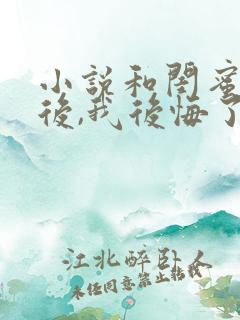 小說和閨蜜
後,我後悔了
江北醉卧人
未经同意禁止转载